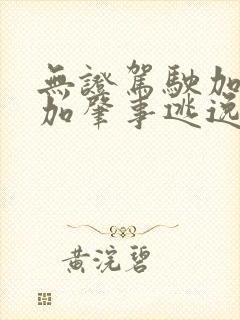 無證駕駛加
加肇事逃逸
黃浣碧